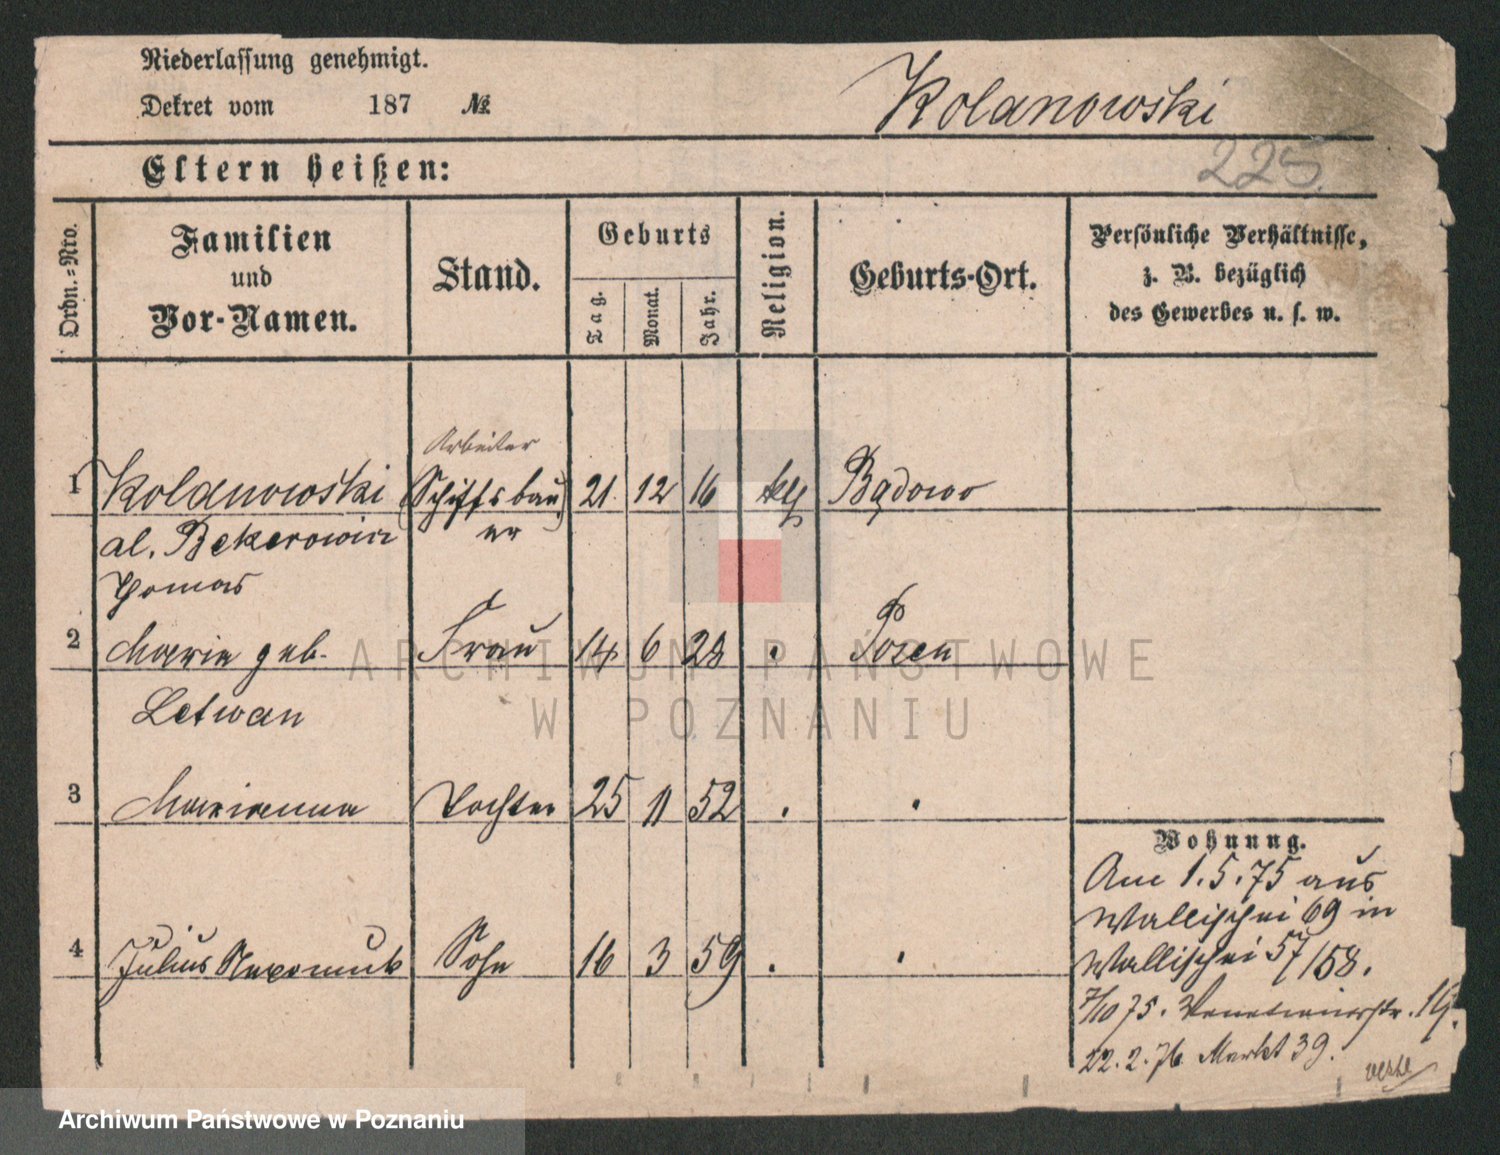 Niederlassung genehmigt.
Dekret vom 187 №
Kolanowski
225.
Eltern heißen:
Ordn.=Nro.
Familien
und
Vor-Namen.
Stand.
Geburts
Tag.
Monat.
Jahr.
Religion.
Geburts-Ort.
Persönliche Verhältnisse,
z. B. bezüglich
des Gewerbes u. s. w.
Arbeiter
1 Kolanowski (Schiffsbau) 21. 12 16 klg Bądowo
al. Bekerowicz er
Thomas
2 Maria geb. Frau 14 6 28 " Posen
Letwan
3 Marianna Tochter 25 11 52 . .
4 Julius Nepomuk Sohn 16 3 59 . .
Wohnung.
Am 1.5.75 aus
Wallischei 69 in
Wallischei 57/58.
7/10 75. Venetianerstr.
22.2.76 Markt 39.
ARCHIWUM PAŃSTWOWE
W POZNANIU
Archiwum Państwowe w Poznaniu